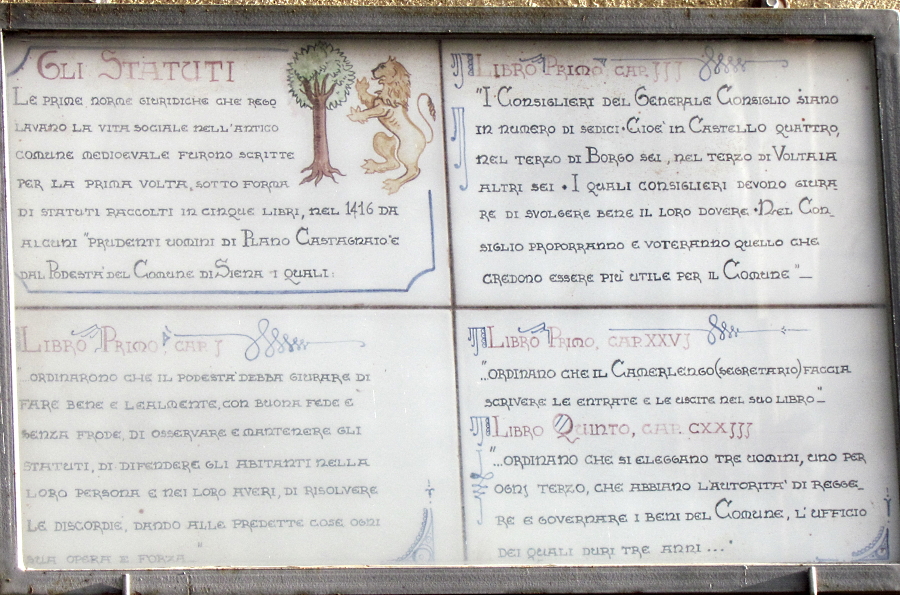 GLI STATUTI
LE PRIME NORME GIURIDICHE CHE REGO
LAVANO LA VITA SOCIALE NELL'ANTICO
COMUNE MEDIOEVALE FURONO SCRITTE
PER LA PRIMA VOLTA, SOTTO FORMA
DI STATUTI RACCOLTI IN CINQUE LIBRI, NEL 1416 DA
ALCUNI "PRUDENTI UOMINI DI PIANO CASTAGNAIO" E
DAL PODESTA' DEL COMUNE DI SIENA I QUALI:
LIBRO PRIMO, CAP. J
...ORDINARONO CHE IL PODESTA' DEBBA GIURARE DI
FARE BENE E LEALMENTE, CON BUONA FEDE E
SENZA FRODE, DI OSSERVARE E MANTENERE GLI
STATUTI, DI DIFENDERE GLI ABITANTI NELLA
LORO PERSONA E NEI LORO AVERI, DI RISOLVERE
LE DISCORDIE, DANDO ALLE PREDETTE COSE OGNI
SUA OPERA E FORZA..."
LIBRO PRIMO, CAP. JJJ
"I CONSIGLIERI DEL GENERALE CONSIGLIO SIANO
IN NUMERO DI SEDICI•CIOE' IN CASTELLO QUATTRO,
NEL TERZO DI BORGO SEI, NEL TERZO DI VOLTAIA
ALTRI SEI • I QUALI CONSIGLIERI DEVONO GIURA
RE DI SVOLGERE BENE IL LORO DOVERE •NEL CON_
SIGLIO PROPORRANNO E VOTERANNO QUELLO CHE
CREDONO ESSERE PIU' UTILE PER IL COMUNE "_
LIBRO PRIMO, CAP. XXVJ
"...ORDINANO CHE IL CAMERLENGO (SEGRETARIO) FACCIA
SCRIVERE LE ENTRATE E LE USCITE NEL SUO LIBRO"_
LIBRO QUINTO, CAP. CXXJJJ
"...ORDINANO CHE SI ELEGGANO TRE UOMINI, UNO PER
OGNJ TERZO, CHE ABBIANO L'AUTORITA' DI REGGE_
RE E GOVERNARE I BENI DEL COMUNE, L'UFFICIO
DEI QUALI DURI TRE ANNI ..."